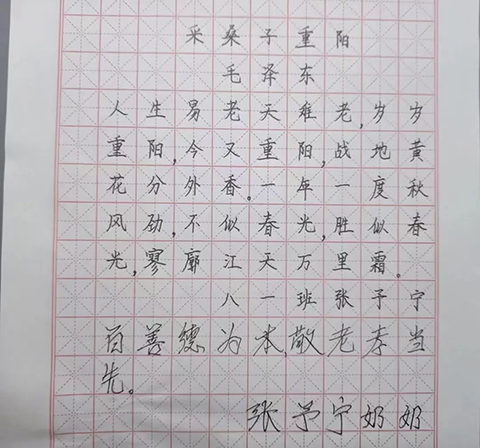 采桑子重阳
毛泽东
人生易老天难老,岁岁
重阳,今又重阳,战地黄
花分外香。一年一度秋
风劲,不似春光,胜似春
光,寥廓江天万里霜。
八一班张予宁
百善德为本,敬老孝当
先。
张予宁奶奶